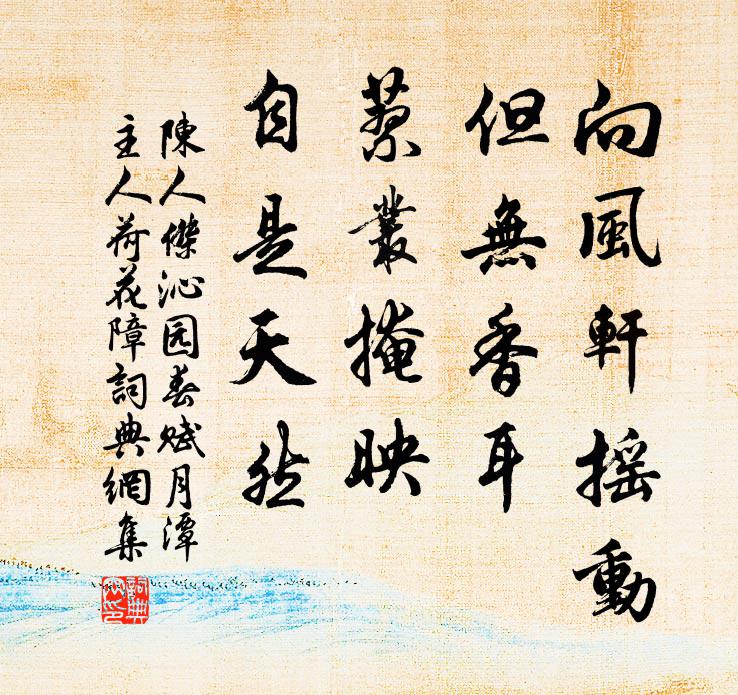 向風軒摇動
但無香耳
蔡叢掩映
自是天然
陳人傑沁园春赋月潭
主人荷花障詞典網集